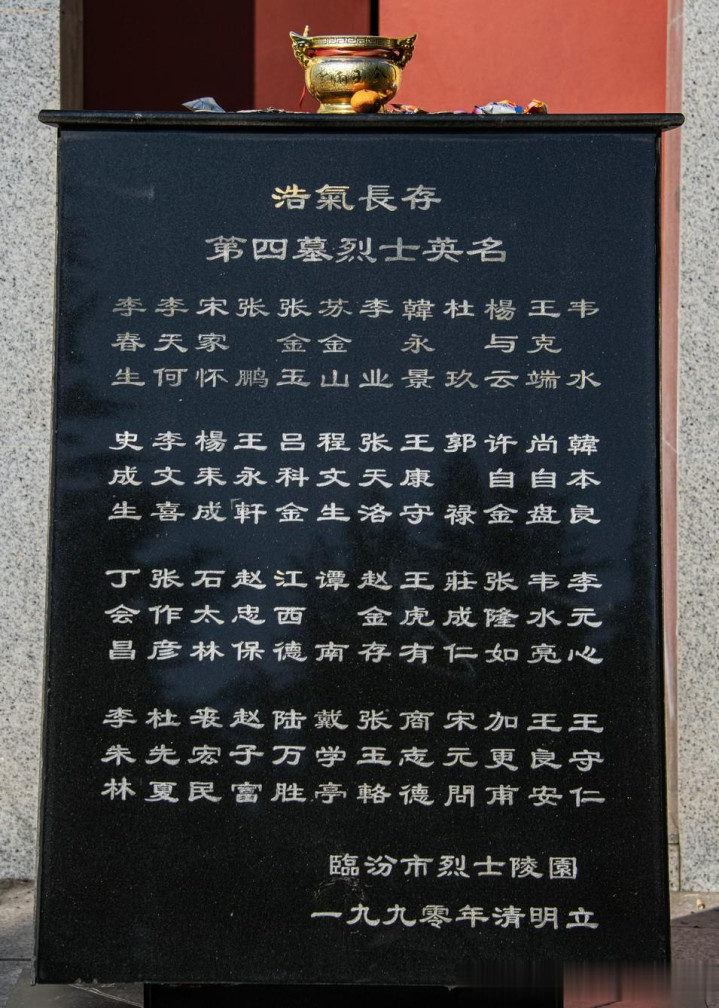 浩氣長存
第四墓烈士英名
李春生 李天何 宋家怀 张鹏 张金玉 苏金山 李业 韓永景 杜玖 楊与云 王克端 韦水
史成生 李文喜 楊耒成 王永軒 吕科金 程文生 张天洛 王康守 郭祿 许自金 尚自盘 韓本良
丁会昌 张作彦 石太林 赵忠保 江西德 谭南 赵金存 王虎有 莊成仁 张隆如 韦水亮 李元心
李朱林 杜先夏 裘宏民 赵子富 陆万胜 戴学亭 张玉輅 商志德 宋元問 加更甫 王良安 王守仁
臨汾市烈士陵園
一九九零年清明立